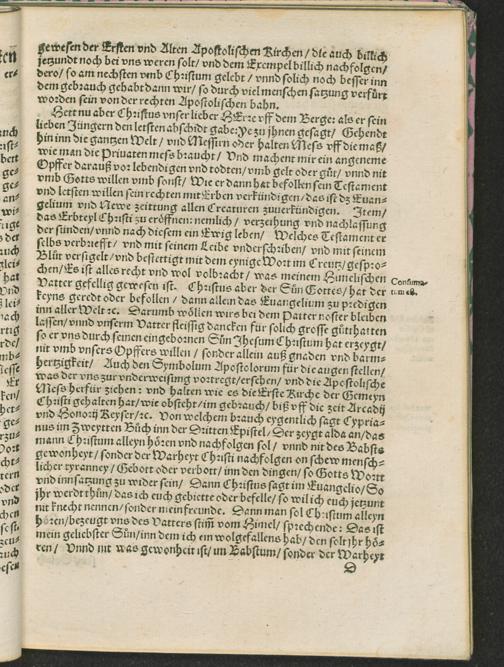 gewesen der Ersten vnd Alten Apostolischen Kirchen / die auch billich
jetzundt noch bei vns weren solt / vnd dem Exempel billich nachfolgen /
dero / so am nechsten vmb Christum gelebt / vnnd solich noch besser inn
dem gebrauch gehabt dann wir / so durch viel menschen satzung verfürt
worden sein von der rechten Apostolischen bahn.
Hett nu aber Christus vnser lieber HErre vff dem Berge: als er sein
lieben Jüngern den letsten abschidt gabe: Ye zu jhnen gesagt / Gehendt
hin inn die gantzen Welt / vnd Messern oder halten Mess vff die maß /
wie man die Priuaten mess braucht / Vnd machent mir ein angeneme
Opffer darauß vor lebendigen vnd todten / vmb gelt oder güt / vnnd nit
vmb Gotts willen vmb sonst / Wie er dann hat befollen sein Testament
vnd letsten willen sein rechten mit Erben verkündigen / das ist dz Euan-
gelium vnd Newe zeittung allen Creaturen zuuerkündigen. Item /
das Erbteyl Christi zu eröffnen: nemlich / verzeihung vnd nachlassung
der sünden / vnnd nach diesem ein Ewig leben / Welches Testament er
selbs verbriefft / vnd mit seinem Leibe vnderschriben / vnd mit seinem
Blüt versigelt / vnd bestettigt mit dem eynige Wort im Creutz / gespro-
chen / Es ist alles recht vnd wol volbracht / was meinem Himelischen
Vatter gefellig gewesen ist. Christus aber der Sün Gottes / hat der
keyns geredt oder befollen / dann allein das Euangelium zu predigen
inn aller Welt ꝛc. Darumb wöllen wirs bei dem Patter noster bleiben
lassen / vnnd vnserm Vatter fleissig dancken für solich grosse gütthatten
so er vns durch seinen eingebornen Sün Jhesum Christum hat erzeygt /
nit vmb vnsers Opffers willen / sonder allein auß gnaden vnd barm-
hertzigkeit / Auch den Symbolum Apostolorum für die augen stellen /
was der vns zur vnderweisung vortregt / ersehen / vnd die Apostolische
Mess herfür ziehen: vnd halten wie es die Erste Kirche der Gemeyn
Christi gehalten hat / wie obsteht / im gebrauch / biß vff die zeit Arcadij
vnd Honorij Keyser / ꝛc. Von welchem brauch eygentlich sagt Cypria-
nus im Zweytten Büch inn der Dritten Epistel / Der zeygt alda an / das
mann Christum alleyn hören vnd nachfolgen sol / vnnd nit des Babsts
gewonheyt / sonder der Warheyt Christi nachfolgen on schew mensch-
licher tyranney / Gebott oder verbott / inn den dingen / so Gotts Wortt
vnd innsatzung zu wider sein / Dann Christus sagt im Euangelio / So
jhr werdt thün / das ich euch gebiette oder befelle / so wil ich euch jetzunt
nit knecht nennen / sonder mein freunde. Dann man sol Christum alleyn
hören / bezeugt vns des Vatters stim̃ vom Himel / sprechende: Das ist
mein geliebster Sün / inn dem ich ein wolgefallens hab / den solt jhr hö-
ren / Vnnd nit was gewonheit ist / im Babstum / sonder der Warheyt
D
Consuma-
tum est.